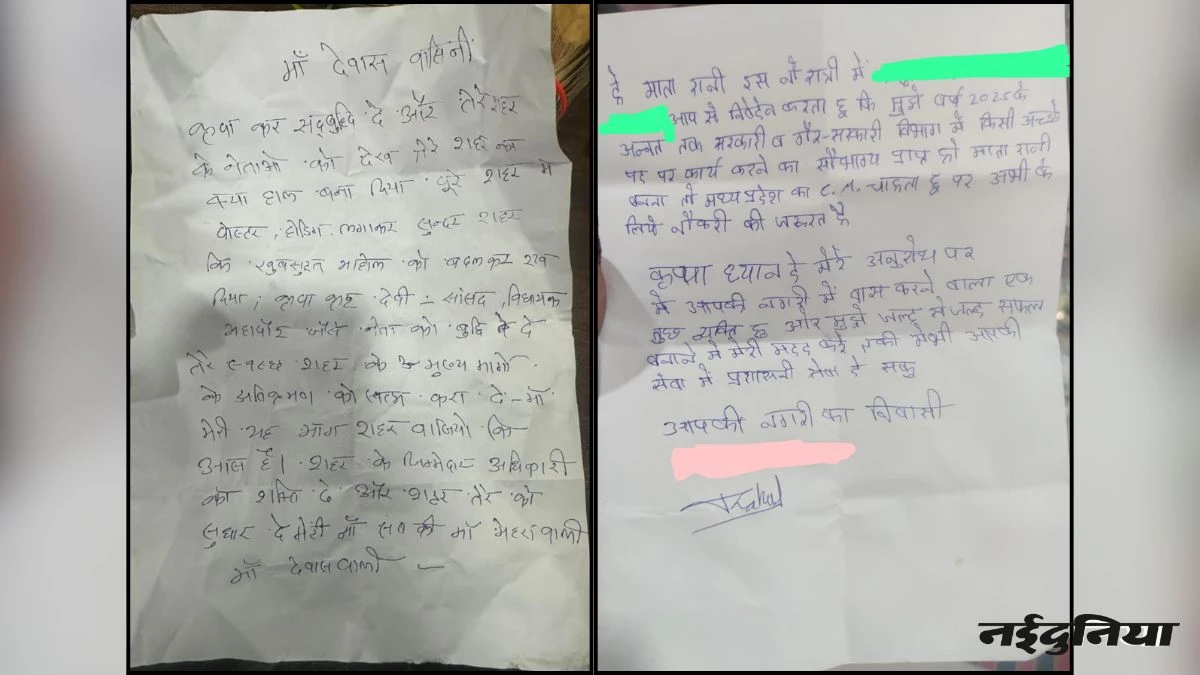 माँ देवास वासिनी
कृपा कर सदबुद्धि दे और तेरे शहर
के नेताओ को देख तेरे शहर का
क्या हाल बना दिया पूरे शहर मे
पोस्टर, होडिंग लगाकर सुन्दर शहर
कि खुबसुरत माहोल को बदलकर रख
दिया, कृपा कर देवी - सांसद, विधायक
महापौर जैसे नेता को बुद्धि दे
तेरे स्वच्छ शहर के मुख्य मार्गो
के अतिक्रमण को खत्म करा दे - माँ
मेरी यह मांग शहर वासियो कि
आस है। शहर के जिम्मेदार अधिकारी
को शक्ति दे और शहर तेरे को
सुधार दे मेरी माँ सब की माँ मेहरावाली
माँ देवासवाली -
हे माता रानी इस नौ रात्री में
आप से निवेदन करता हू कि मुझे वर्ष 2025 के
अन्नत तक सरकारी व गैर-सरकारी विभाग में किसी अच्छे
पद पर कार्य करने का सौभाग्य प्राप्त हो माता रानी
बनना तो मध्यप्रदेश का C.M. चाहता हू पर अभी के
लिये नौकरी की जरूरत है
कृपा ध्यान दे मेरे अनुरोध पर
मे आपकी नगरी में वास करने वाला एक
तुछ व्यक्ति हू और मुझे जल्द से जल्द सफल
बनाने मे मेरी मदद करे ताकी मे भी आपकी
सेवा में प्रशासनी सेवा दे सकु
आपकी नगरी का निवासी
नईदुनिया